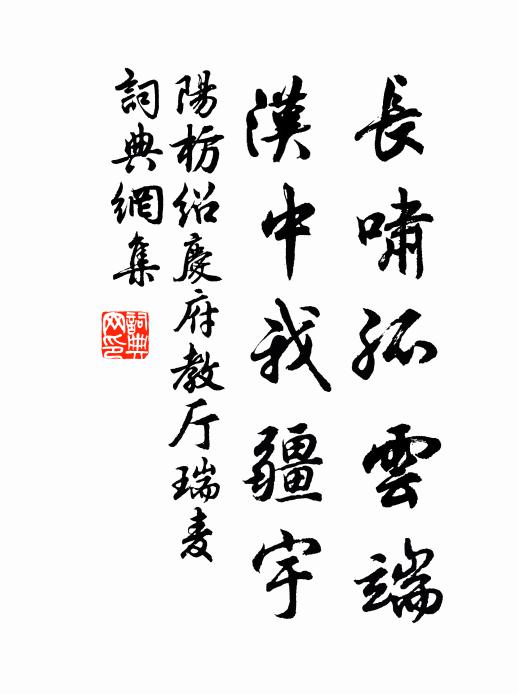 長嘯孤雲端
漢中我疆宇
陽枋紹慶府教厅瑞麦
詞典網集
詞典
网印